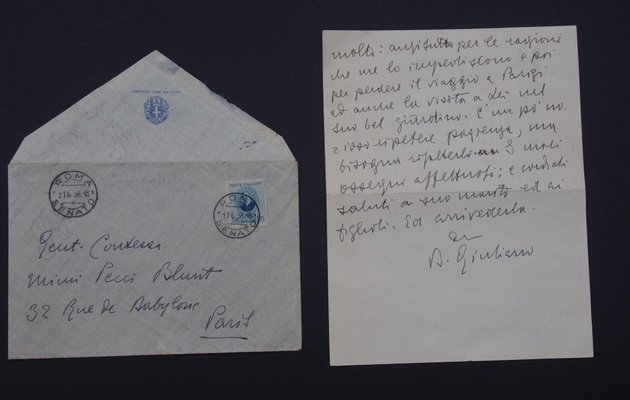 ROMA
11.6.56.18
SENATO
POSTE ITALIANE
ROMA
11.6.56.18
SENATO
Gent. Contessa
Mimi Pecci Blunt
32 Rue de Babylone
Paris
molto: anzitutto per le ragioni
che me lo impediscono e poi
per perdere il viaggio a Parigi
ed anche la visita a Lei nel
suo bel giardino. È un po' no
ioso ripetere pazienza, ma
bisogna ripeterlo.
ossequi affettuosi; e cordiali
saluti a suo marito ed ai
figlioli. Ed arrivederla.
B. Giuliano